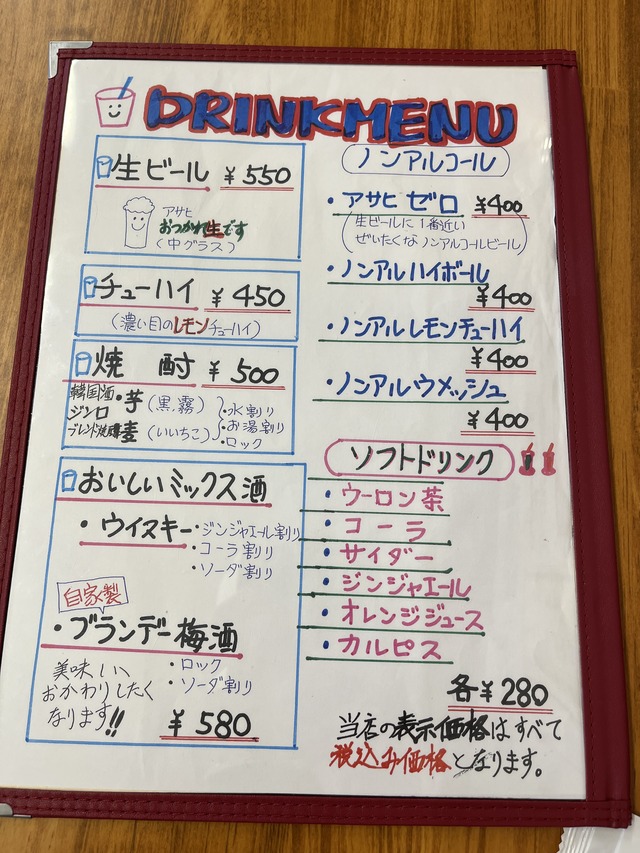 DRINKMENU
生ビール ¥550
アサヒ
おつかれ生です
(中グラス)
チューハイ ¥450
(濃い目のレモンチューハイ)
焼酎 ¥500
韓国酒
ジンロ
ブレンド焼酎
・芋(黒霧)
麦(いいちこ)
・水割り
・お湯割り
・ロック
おいしいミックス酒
・ウイスキー・ジンジャエール割り
・コーラ割り
・ソーダ割り
自家製
・ブランデー梅酒
・ロック
・ソーダ割り
美味しい、
おかわりしたく
なります!!
¥580
ノンアルコール
・アサヒ ゼロ ¥400
(生ビールに1番近い
ぜいたくなノンアルコールビール)
・ノンアルハイボール
¥400
・ノンアルレモンチューハイ
¥400
・ノンアルウメッシュ
¥400
ソフトドリンク
・ウーロン茶
・コーラ
・サイダー
・ジンジャエール
・オレンジジュース
・カルピス
各¥280
当店の表示価格はすべて
税込み価格となります。